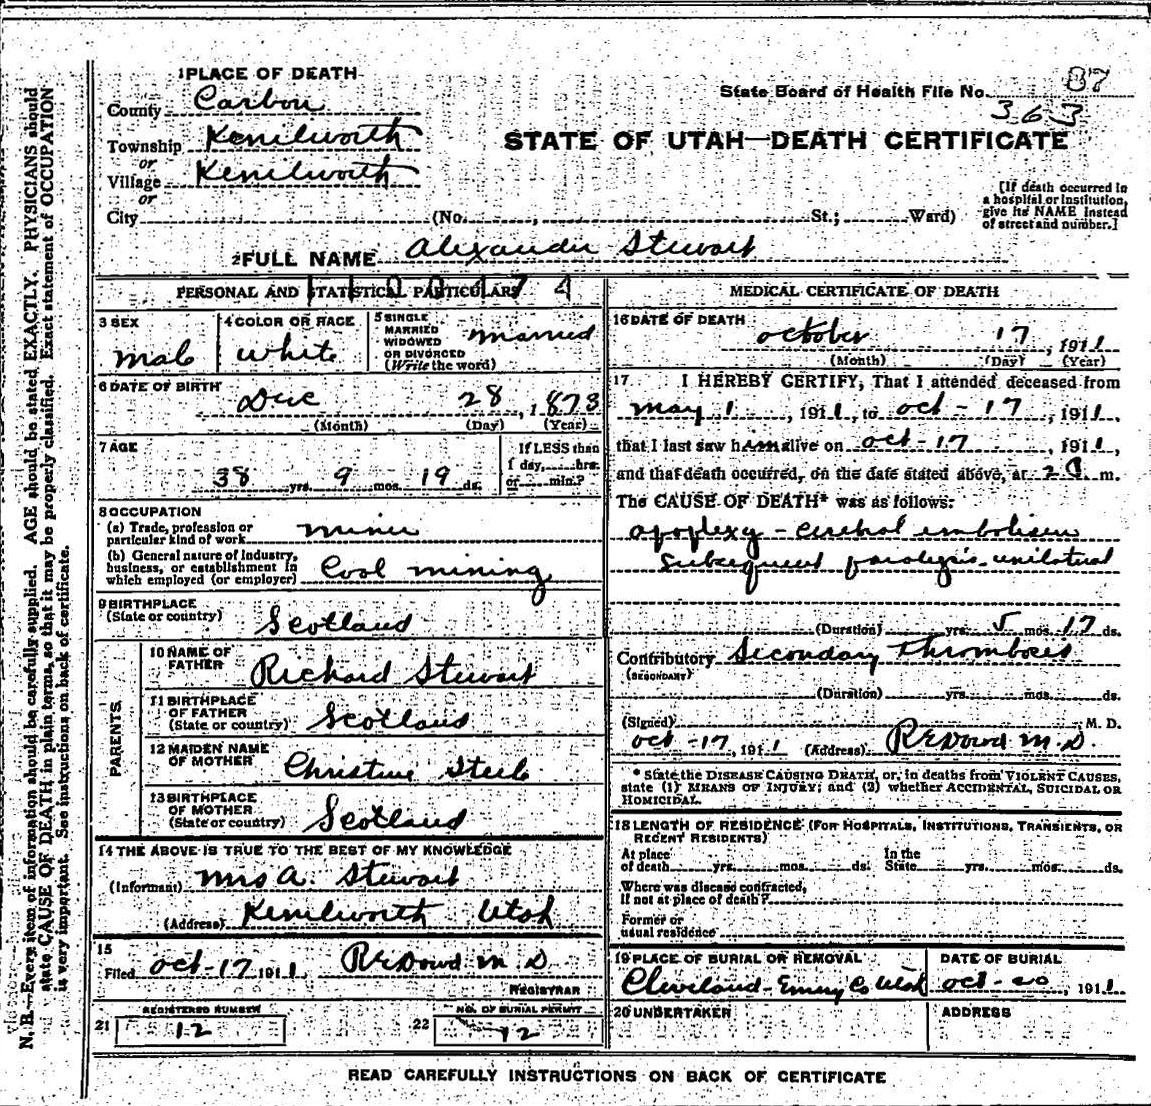 1 PLACE OF DEATH
County Carbon
Township Kenilworth
or
Village Kenilworth
or
City (No. , St.; Ward)
State Board of Health File No. 87
363
STATE OF UTAH—DEATH CERTIFICATE
[If death occurred in
a hospital or institution,
give its NAME instead
of street and number.]
2 FULL NAME Alexander Stewart
PERSONAL AND STATISTICAL PARTICULARS
3 SEX
male
4 COLOR OR RACE
white
5 SINGLE
MARRIED
WIDOWED
OR DIVORCED
(Write the word)
married
6 DATE OF BIRTH
Dec 28, 1873
(Month) (Day) (Year)
7 AGE
38 yrs. 9 mos. 19 ds.
If LESS than
1 day, hrs.
or min.?
8 OCCUPATION
(a) Trade, profession or
particular kind of work miner
(b) General nature of Industry,
business, or establishment in
which employed (or employer) Coal mining
9 BIRTHPLACE
(State or country) Scotland
PARENTS
10 NAME OF
FATHER Richard Stewart
11 BIRTHPLACE
OF FATHER
(State or country) Scotland
12 MAIDEN NAME
OF MOTHER Christine Steele
13 BIRTHPLACE
OF MOTHER
(State or country) Scotland
14 THE ABOVE IS TRUE TO THE BEST OF MY KNOWLEDGE
(Informant) Mrs A. Stewart
(Address) Kenilworth Utah
15
Filed Oct-17 1911 REDowd M D
REGISTRAR
REGISTERED NUMBER
21 12
NO. OF BURIAL PERMIT
22 12
MEDICAL CERTIFICATE OF DEATH
16 DATE OF DEATH
October 17, 1911
(Month) (Day) (Year)
17 I HEREBY CERTIFY, That I attended deceased from
May 1, 1911, to Oct-17, 1911,
that I last saw him alive on Oct-17, 1911,
and that death occurred, on the date stated above, at 2 a m.
The CAUSE OF DEATH* was as follows:
apoplexy - cerebral embolism
Subsequent paralysis-unilateral
(Duration) yrs. 5 mos. 17 ds.
Contributory Secondary Thrombosis
(SECONDARY)
(Duration) yrs. mos. ds.
(Signed) M. D.
Oct-17, 1911 (Address) REDowd M.D.
* State the DISEASE CAUSING DEATH, or, in deaths from VIOLENT CAUSES,
state (1) MEANS OF INJURY; and (2) whether ACCIDENTAL, SUICIDAL OR
HOMICIDAL.
18 LENGTH OF RESIDENCE (FOR HOSPITALS, INSTITUTIONS, TRANSIENTS, OR
RECENT RESIDENTS)
At place In the
of death yrs. mos. ds. State yrs. mos. ds.
Where was disease contracted,
If not at place of death?
Former or
usual residence
19 PLACE OF BURIAL OR REMOVAL
Cleveland-Emery Co Utah
DATE OF BURIAL
Oct-20, 1911
20 UNDERTAKER
ADDRESS
READ CAREFULLY INSTRUCTIONS ON BACK OF CERTIFICATE
N. B.—Every item of information should be carefully supplied. AGE should be stated EXACTLY. PHYSICIANS should
state CAUSE OF DEATH in plain terms, so that it may be properly classified. Exact statement of OCCUPATION
is very important. See instructions on back of certificate.